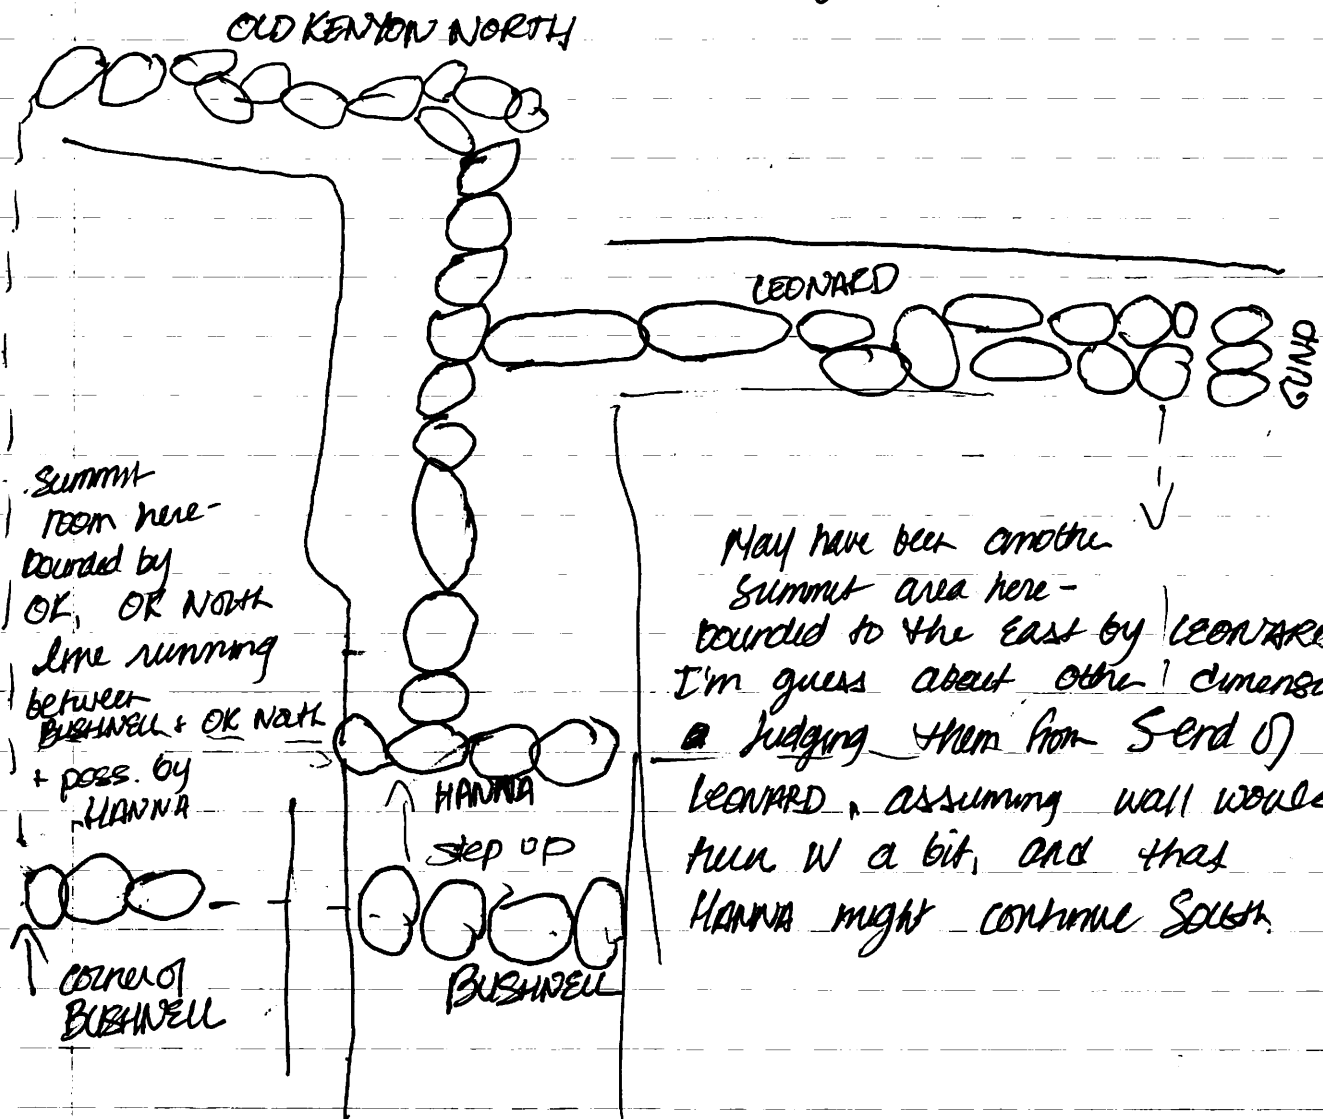 OLD KENYON NORTH
LEONARD
GUND
Summit
room here-
bounded by
OK, OK North
line running
between
BUSHNELL + OK North
+ poss. by
HANNA
HANNA
step up
corner of
BUSHNELL
BUSHNELL
May have been another
summit area here -
bounded to the East by LEONARD
I'm guess about other dimens
Judging them from S end of
LEONARD, assuming wall would
turn W a bit, and that
HANNA might continue South.